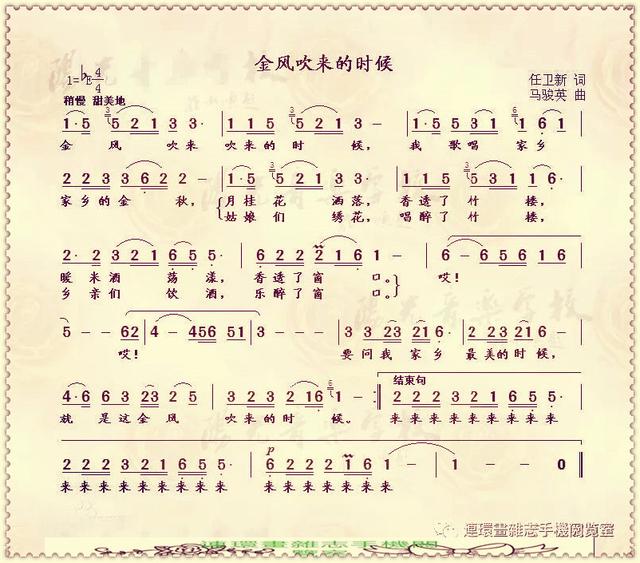 金风吹来的时候
1=♭E 4/4
任卫新 词
稍慢 甜美地
马骏英 曲
1·5 5 2 1 3 3· 1 1 5 5 2 1 3 – 1·5 5 3 1 1 6 1
金 风 吹来 吹来的 时 候, 我 歌唱 家乡
2 2 3 3 6 2 2 – 1 1 5 5 2 1 3· 1 1 5 5 3 1 1 6·
家乡的金 秋, 月桂花 洒落, 香透了竹 楼,
姑娘们 绣花, 唱醉了竹 楼,
2· 2 3 1 6 5· 6 2 2 2 1 6 1 – 6 – 6 5 6 1 6
暖米酒 荡漾, 香透了窗 口。 哎!
乡亲们 饮酒, 乐醉了窗 口。
5 – – 6 2 4 – 4 5 6 5 1 3 – – – 3 3 2 3 2 1 6· 2 2 3 2 1 6·
哎! 要问我家乡 最美的时候,
4·6 6 3 2 3 2 5 3 2 3 2 1 6 1 – 结束句 2 2 2 3 2 1 6 5 5·
就 是这金 风 吹来的时 候。 来来来来来来来来来
2 2 2 3 2 1 6 5 5· p 6 2 2 2 1 6 1 – 1 – – 0
来来来来来来来来来 来来来来来来来
連環畫雜志手機閲覽室
連環畫雜志手機閲
覽室